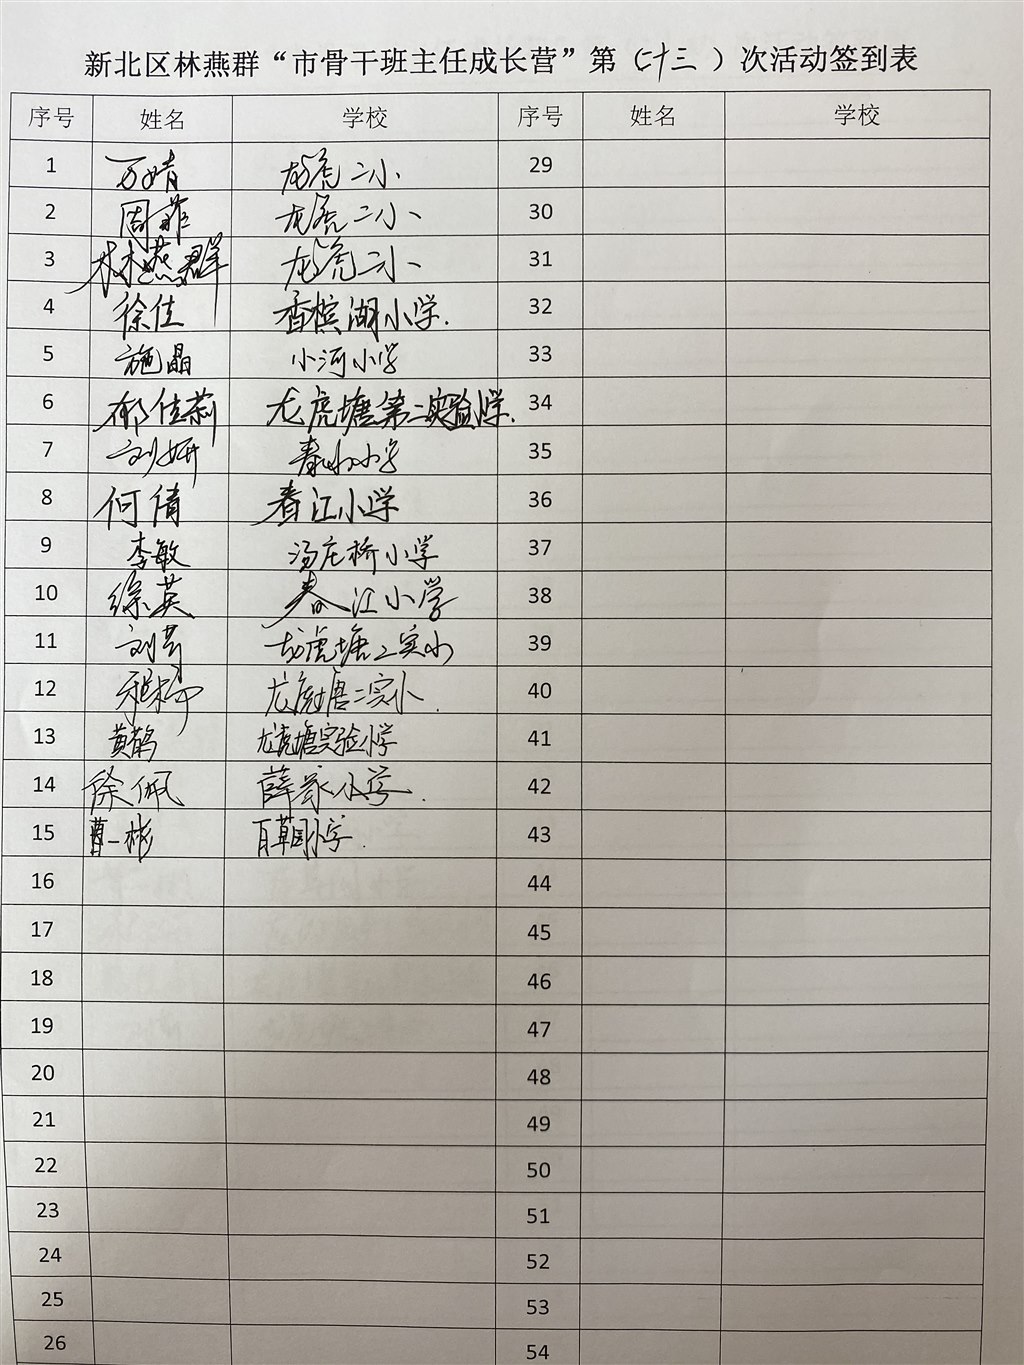 新北区林燕群“市骨干班主任成长营”第（二十三）次活动签到表
序号 姓名 学校 序号 姓名 学校
1 万婧 龙虎二小 29
2 周菲 龙虎二小 30
3 林燕群 龙虎二小 31
4 徐佳 香槟湖小学. 32
5 施晶 小河小学 33
6 郁佳莉 龙虎塘第二实验小学. 34
7 刘妍 小学 35
8 何倩 春江小学 36
9 李敏 汤庄桥小学 37
10 徐英 春江小学 38
11 刘芳 龙虎塘二实小 39
12 龙虎塘二实小. 40
13 黄鹤 龙虎塘实验小学 41
14 徐佩 薛家小学. 42
15 曹一彬 百草园小学. 43
16 44
17 45
18 46
19 47
20 48
21 49
22 50
23 51
24 52
25 53
26 54